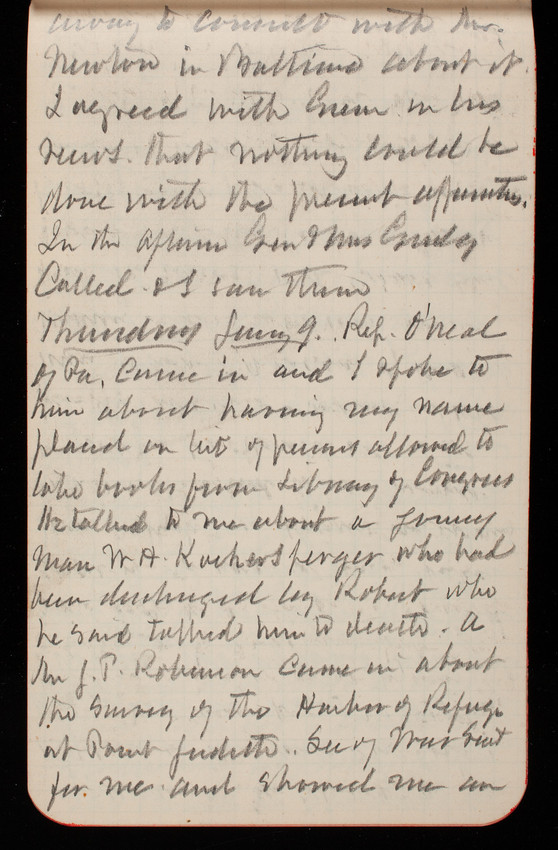 away to consult with Mr.
Newton in Baltimore about it.
I agreed with in his
views that nothing could be
done with the present
In the Gen & Mrs
Called & I saw them
Thursday Jany 9. Rep. O'Neal
of Pa. Came in and I spoke to
him about having my name
placed on list of persons allowed to
take books from Library of Congress
He talked to me about a young
man W. H. Kochersperger who had
been discharged by Robert who
he said talked him to death. A
Mr J. P. Robinson Came in about
the survey of the Harbor of Refuge
at Point Judith. Sec of War sent
for me and showed me an